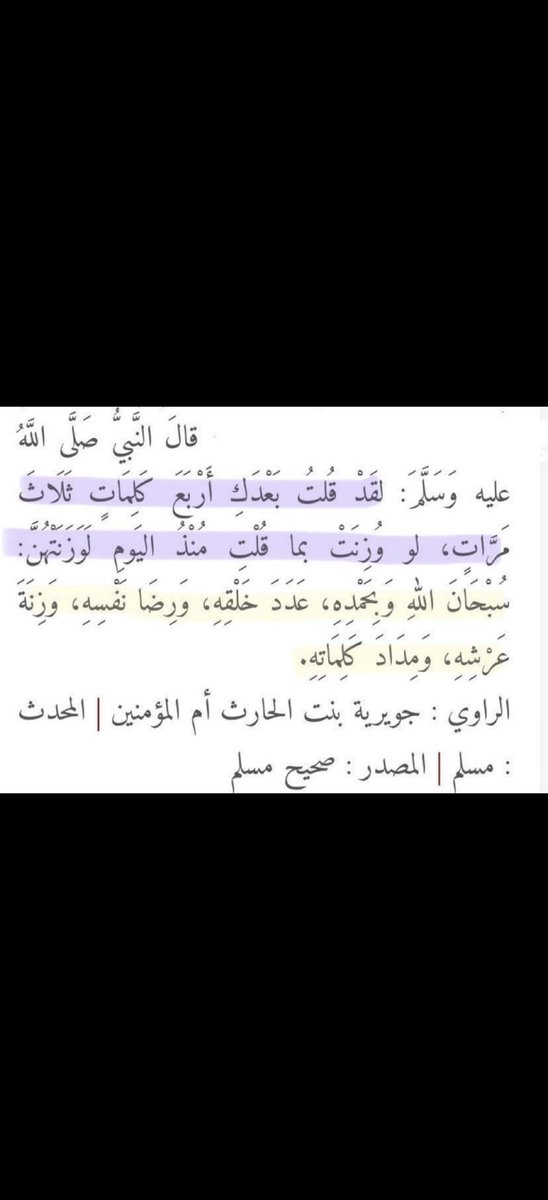 قالَ النَّبيُّ صَلَّى اللَّهُ
عليه وَسَلَّمَ: لقَدْ قُلتُ بَعْدَكِ أَرْبَعَ كَلِمَاتٍ ثَلَاثَ
مَرَّاتٍ، لو وُزِنَتْ بما قُلْتِ مُنْذُ اليَومِ لَوَزَنَتْهُنَّ:
سُبْحَانَ اللهِ وَبِحَمْدِهِ، عَدَدَ خَلْقِهِ، وَرِضَا نَفْسِهِ، وَزِنَةَ
عَرْشِهِ، وَمِدَادَ كَلِمَاتِهِ.
الراوي : جويرية بنت الحارث أم المؤمنين | المحدث
: مسلم | المصدر : صحيح مسلم